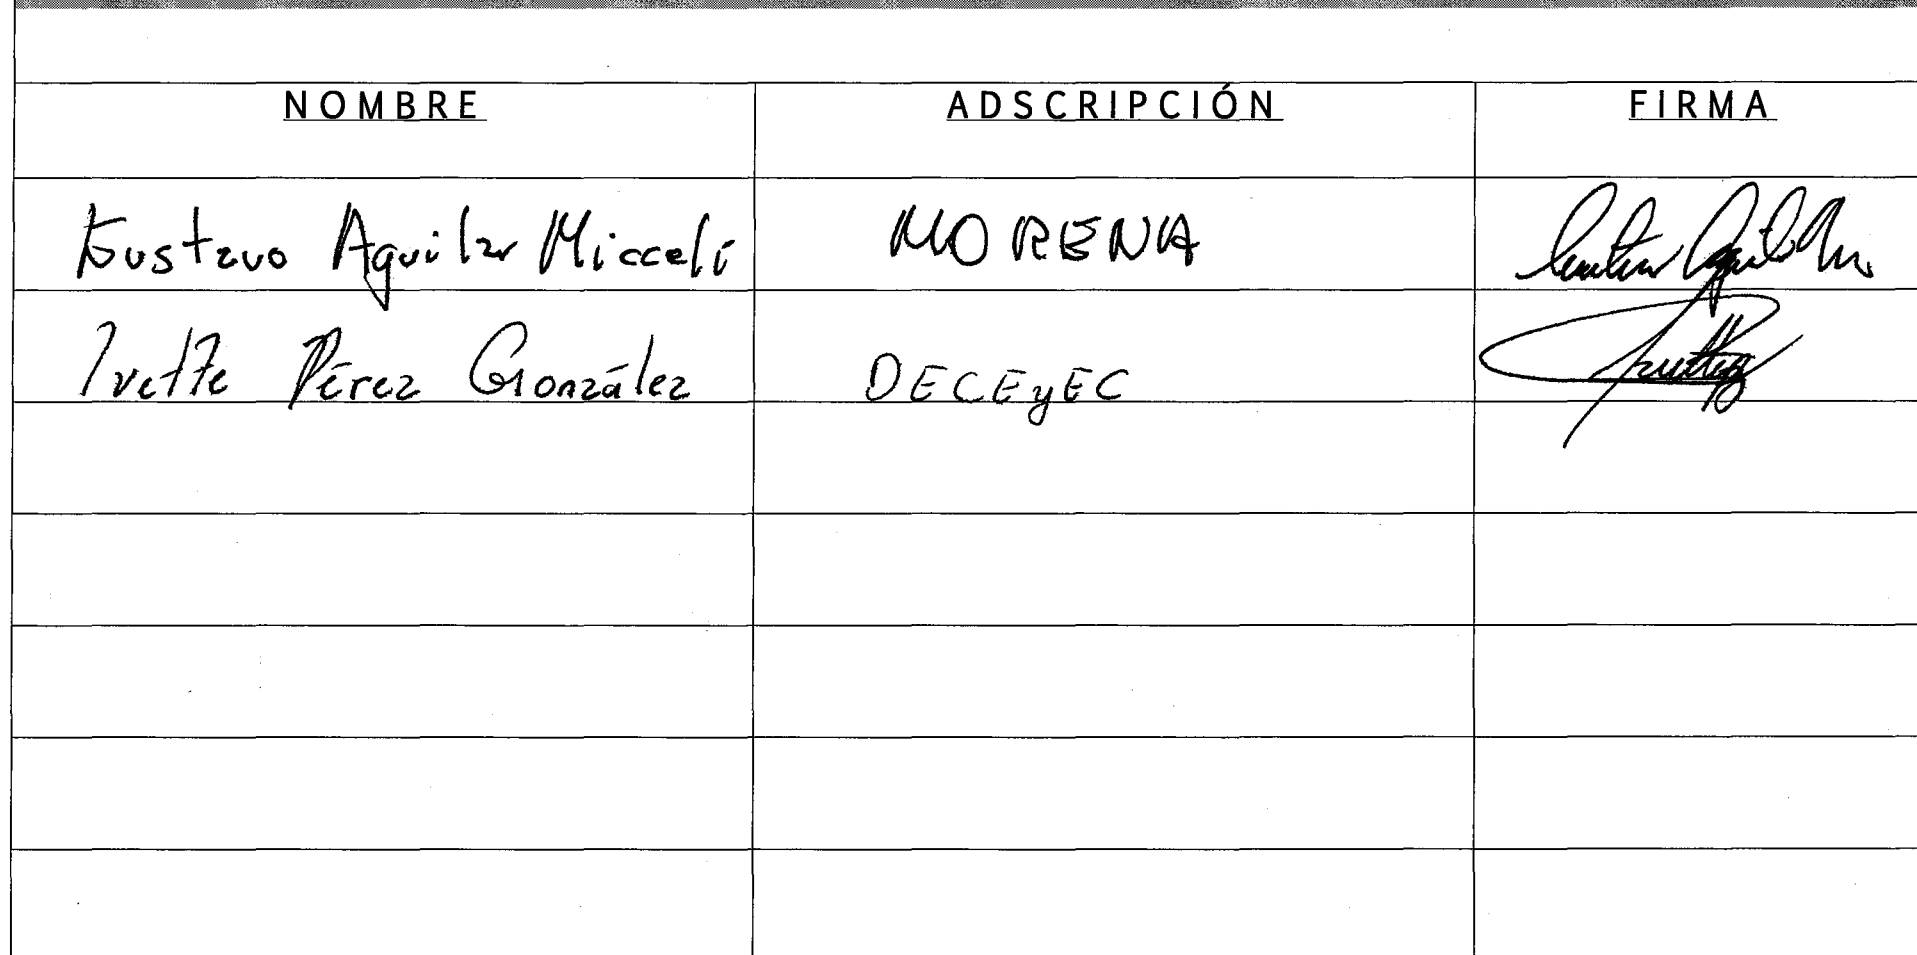 NOMBRE ADSCRIPCIÓN FIRMA
Gustavo Aguilar Micceli MORENA
Ivette Pérez González DECEyEC